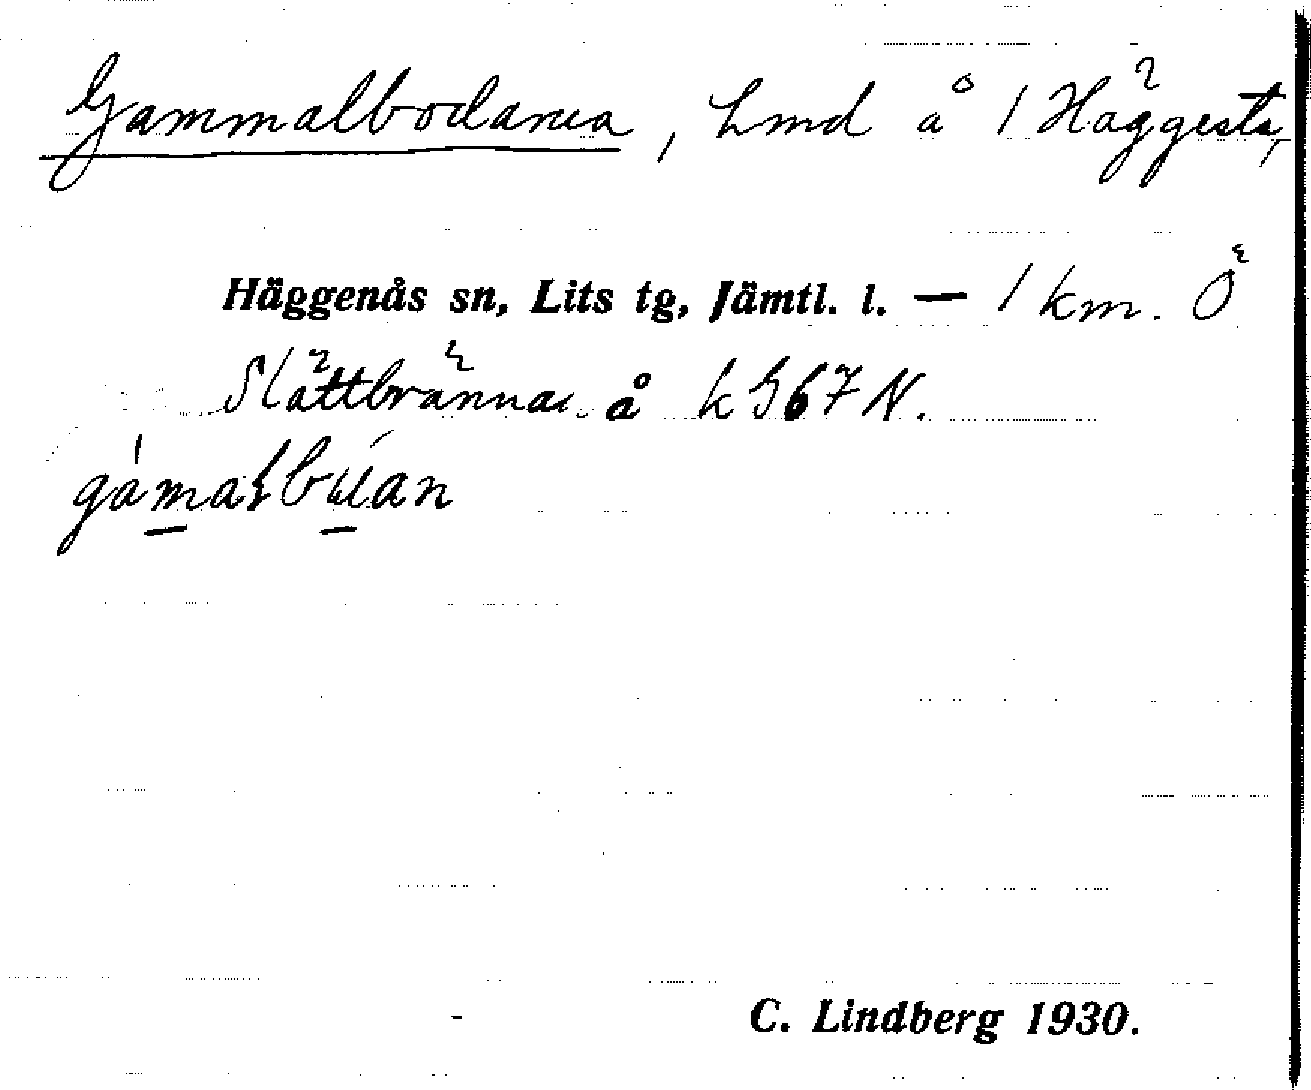 Gammalbodarna, Lmd å 1 Häggesta,
Häggenås sn, Lits tg, Jämtl. l. — 1 km. Ö
Slättbrännan å k G67 N.
gámalbúan
C. Lindberg 1930.